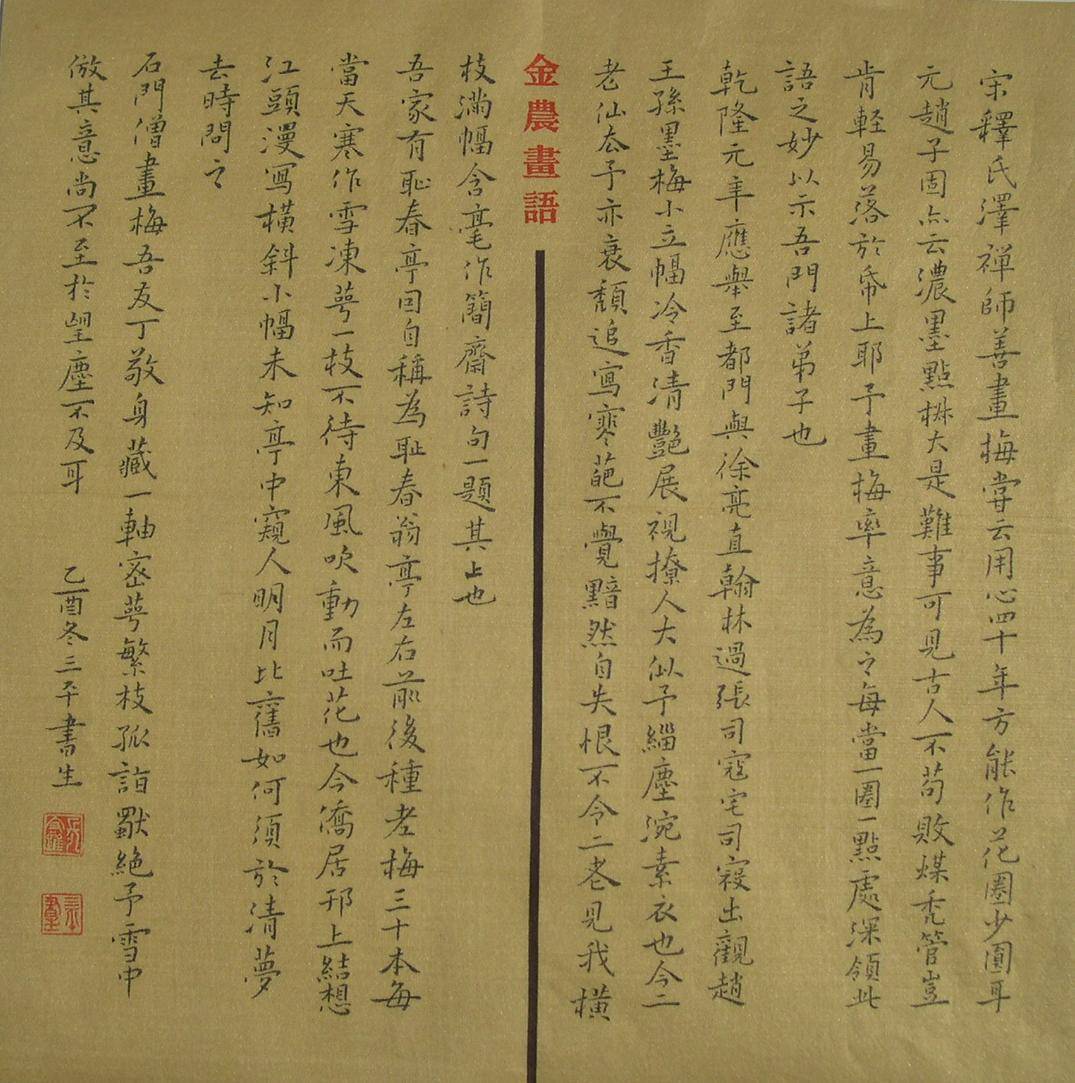 宋釋氏澤禅師善畫梅嘗云用心四十年方能作花圈少圓耳
元趙子固亦云濃墨點椒大是難事可見古人不苟敗煤禿管豈
肯軽易落於帋上耶予畫梅率意為之每當一圈一點處深領此
語之妙以示吾門諸弟子也
乾隆元年應舉至都門與徐亮直翰林過張司寇宅司寇出觀趙
王孫墨梅小立幅冷香清艷展視撩人大似予緇塵涴素衣也今二
老仙去予亦衰頹追寫寒葩不覺黯然自失恨不令二老見我橫
金農畫語
枝滿幅含毫作簡齋詩句一題其上也
吾家有恥春亭因自稱為恥春翁亭左右前後種老梅三十本每
當天寒作雪凍萼一枝不待東風吹動而吐花也今僑居邗上結想
江頭漫寫橫斜小幅未知亭中窺人明月比舊如何須於清夢
去時問之
石門僧畫梅吾友丁敬身藏一軸密萼繁枝孤詣獨絕予雪中
倣其意尚不至於望塵不及耳
乙酉冬三平書生